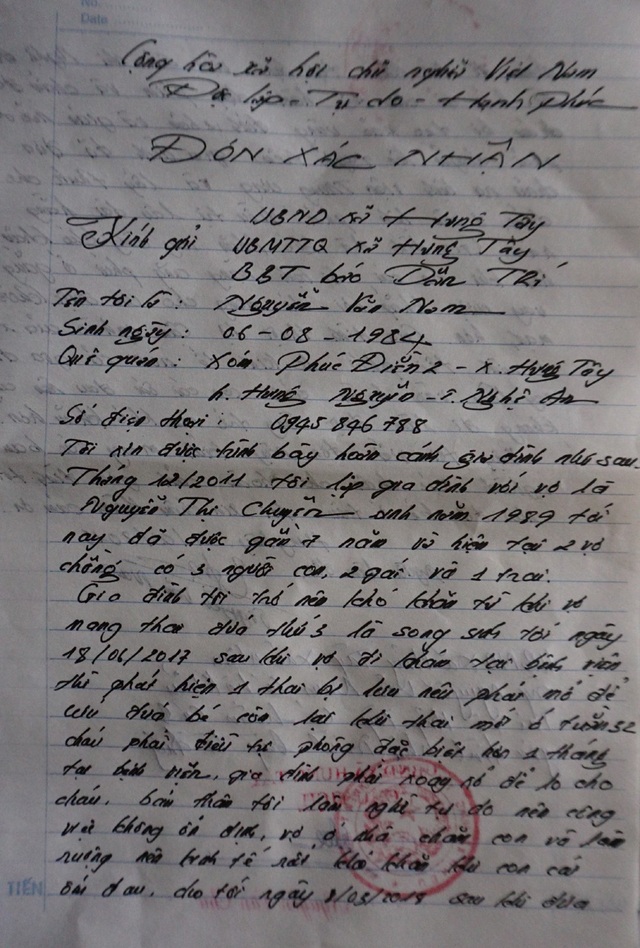 No.
Date
Cộng hòa xã hội chủ nghĩa Việt Nam
Độc lập - Tự do - Hạnh Phúc
ĐƠN XÁC NHẬN
UBND xã Hưng Tây
Kính gửi UBMTTQ xã Hưng Tây
BBT báo Dân Trí
Tên tôi là : Nguyễn Văn Nam
Sinh ngày : 06 - 08 - 1984
Quê quán : Xóm Phúc Điền 2 - x. Hưng Tây
h. Hưng Nguyên - T. Nghệ An
Số điện thoại : 0945 846 788
Tôi xin được trình bày hoàn cảnh gia đình như sau.
Tháng 12/2011 tôi lập gia đình với vợ là
Nguyễn Thị Chuyên sinh năm 1989 tới
nay đã được gần 7 năm và hiện tại 2 vợ
chồng có 3 người con, 2 gái và 1 trai.
Gia đình tôi trở nên khó khăn từ khi vợ
mang thai đứa thứ 3 là song sinh tới ngày
18/06/2017 sau khi vợ đi khám tại bệnh viện
thì phát hiện 1 thai bị lưu nên phải mổ để
cứu đứa bé còn lại khi thai mới ở tuần 32
cháu phải điều trị phòng đặc biệt hơn 1 tháng
tại bệnh viện, gia đình phải xoay sở để lo cho
cháu. bản thân tôi làm nghề tự do nên công
việc không ổn định, vợ ở nhà chăm con và làm
ruộng nên kinh tế rất khó khăn khi con cái
ốm đau. cho tới ngày 8/03/2018 sau khi đưa
TIẾN